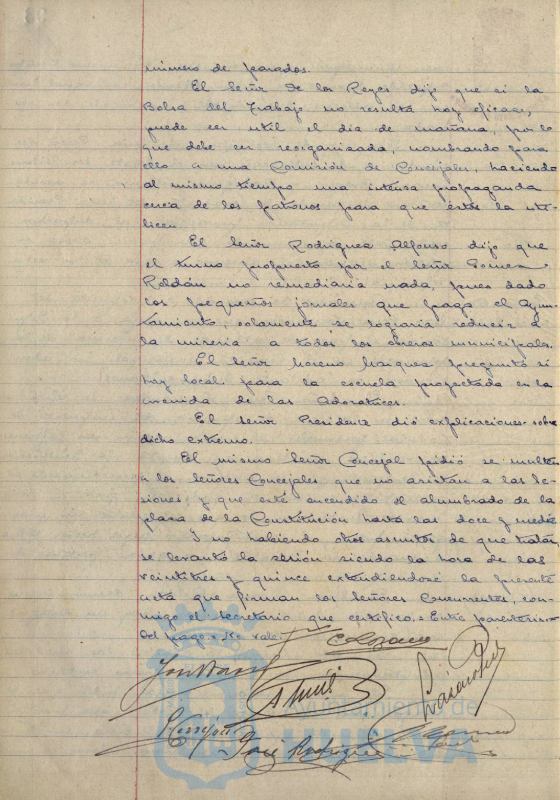 número de parados.
El Señor de los Reyes dijo que si la
Bolsa del Trabajo no resulta hoy eficaz,
puede ser util el día de mañana, por lo
que debe ser reorganizada, nombrando para
ello a una Comisión de Concejales, haciendo
al mismo tiempo una intensa propaganda
cerca de los patronos para que éstos la uti-
licen.
El Señor Rodríguez Alfonso dijo que
el turno propuesto por el Señor Gomez
Roldán no remediaria nada, pues dado
los pequeños jornales que paga el Ayun-
tamiento, solamente se lograria reducir a
la miseria a todos los obreros municipales.
El Señor Moreno Márquez preguntó si
hay local para la escuela proyectada en la
avenida de las Adoratrices.
El Señor Presidente dió explicaciones sobre
dicho extremo.
El mismo Señor Concejal pidió se multe
a los Señores Concejales que no asistan a las Se-
siones y que esté encendido el alumbrado de la
plaza de la Constitución hasta las doce y media
Y no habiendo otros asuntos de que tratar,
se levantó la sesión siendo la hora de las
veintitres y quince extendiendose la presente
acta que firman los Señores Concurrentes, con-
migo el Secretario que certifico.= Entre parentesis=
del pago= No vale=
José Rodríguez
Ayuntamiento de
HUELVA